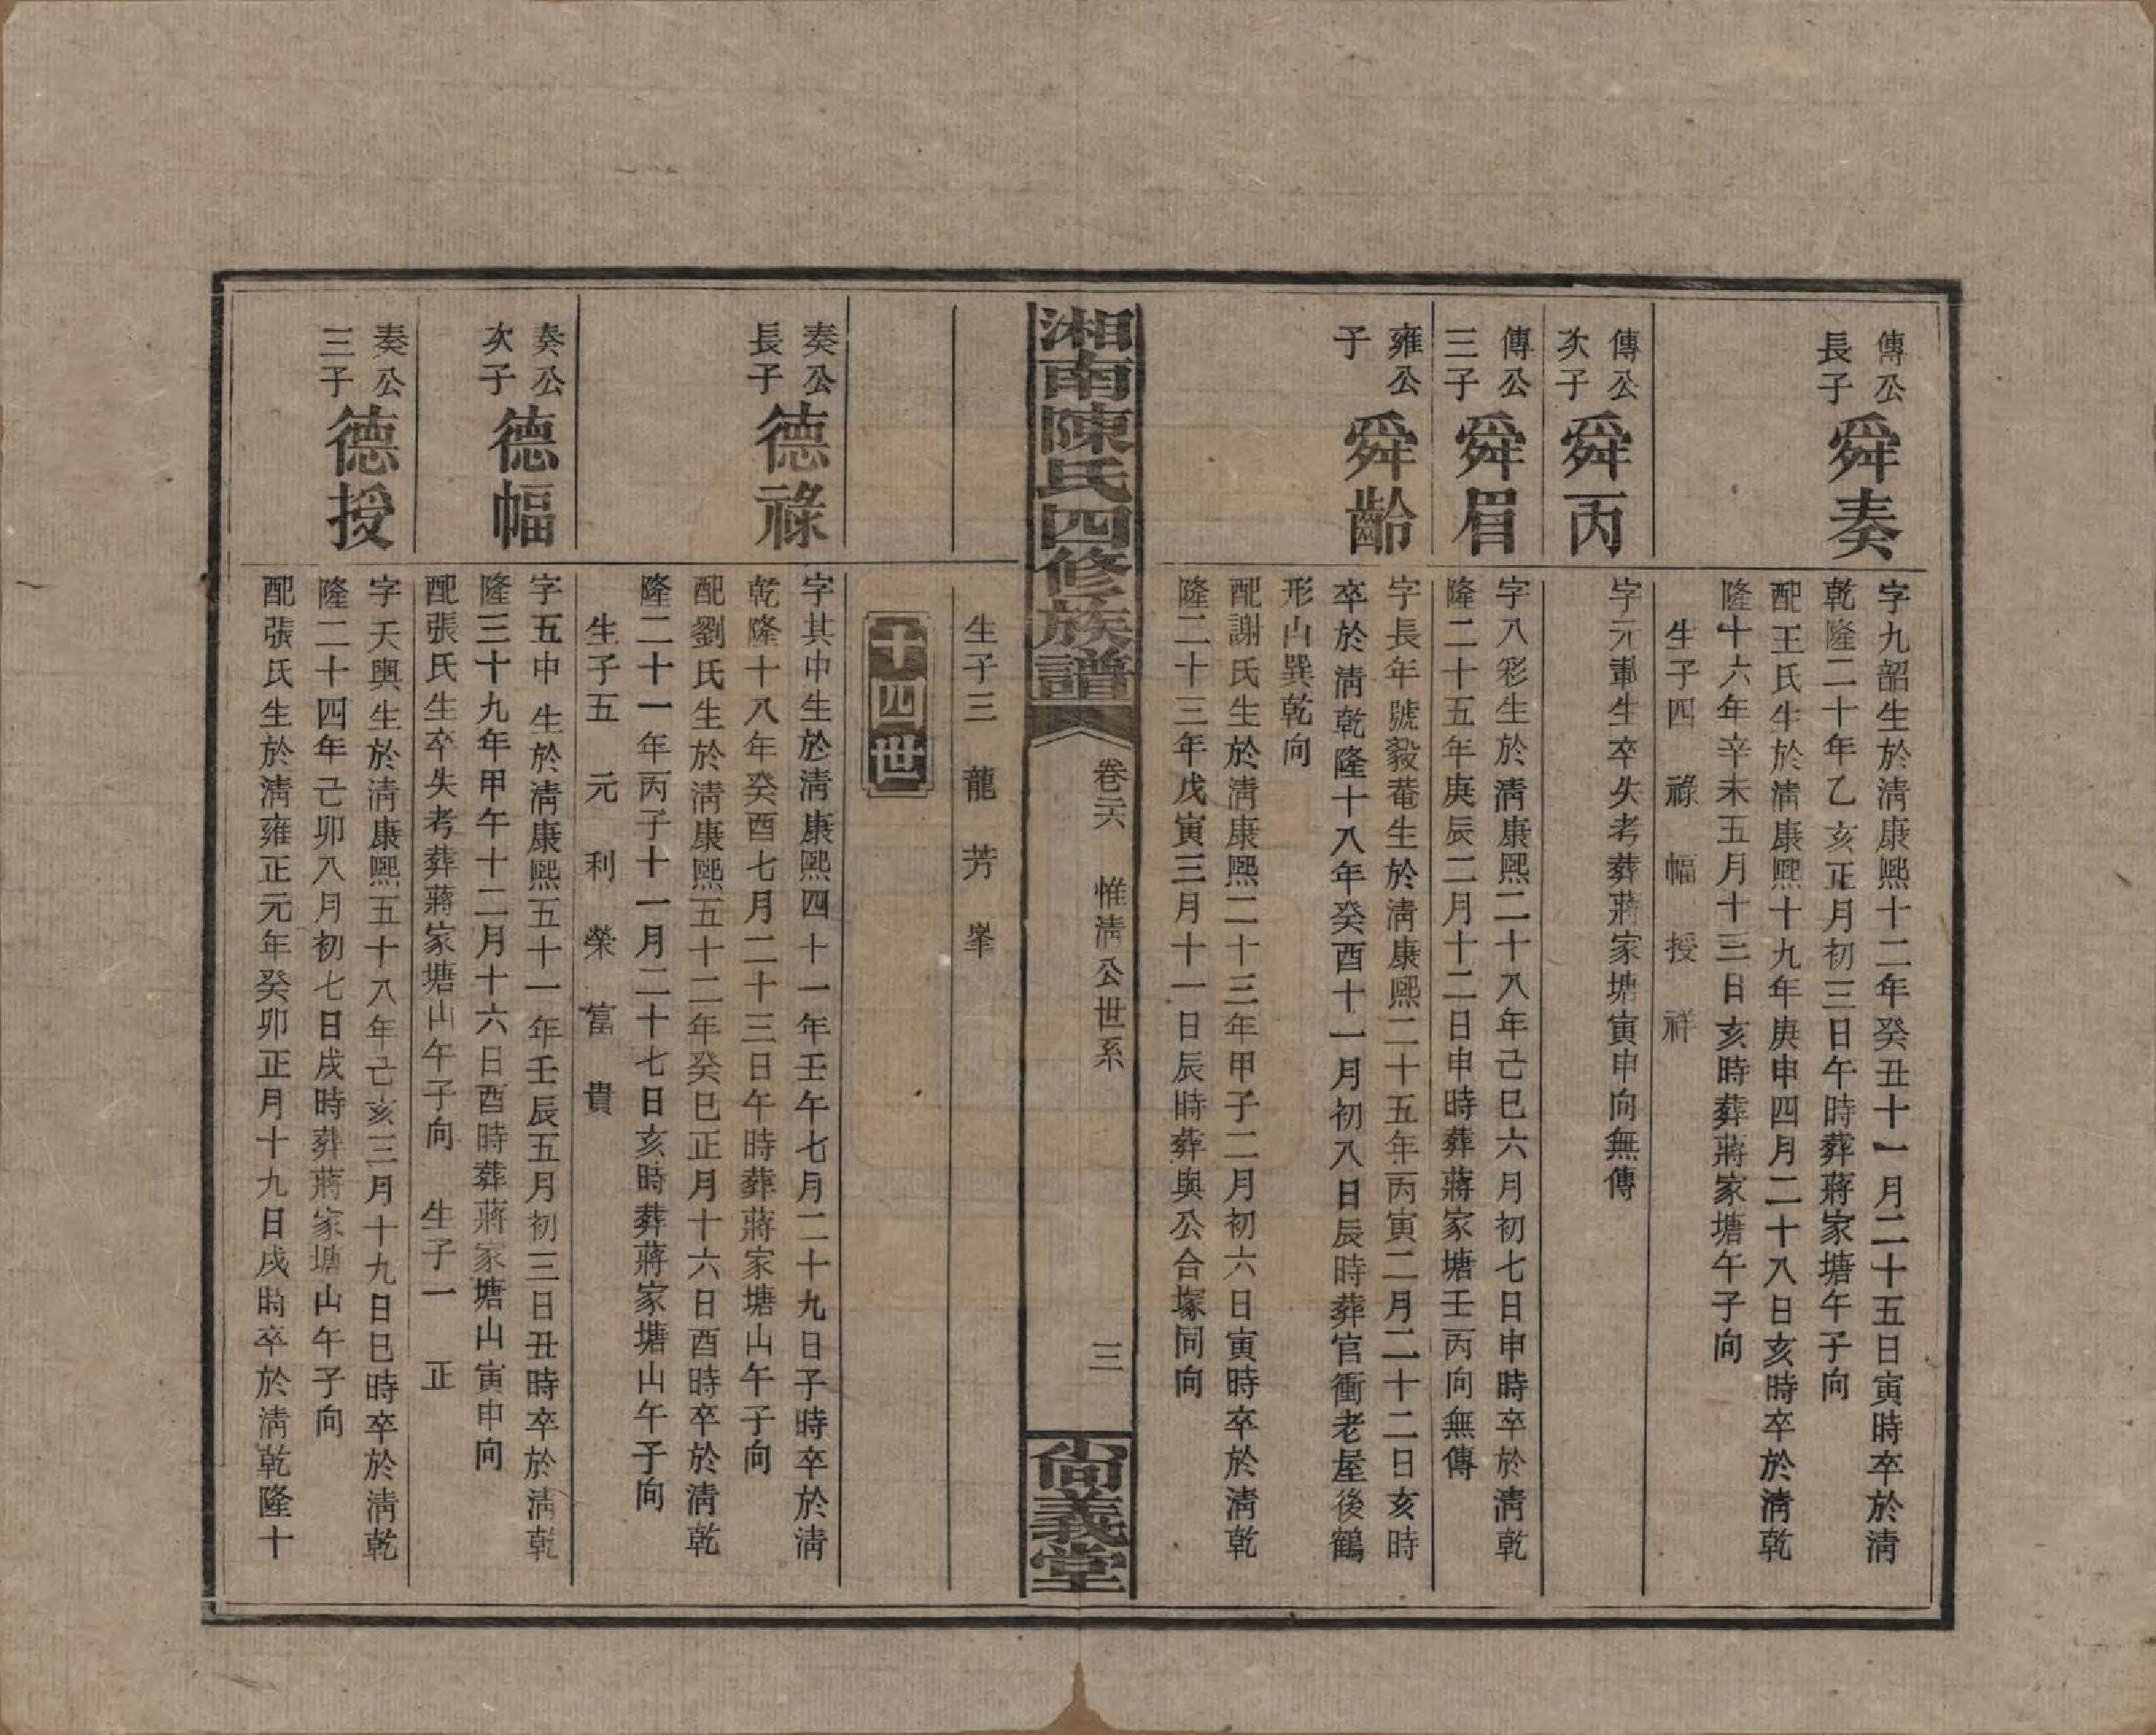 傳公
長子
舜奏
字九韶生於清康熙十二年癸丑十一月二十五日寅時卒於清
乾隆二十年乙亥正月初三日午時葬蔣家塘午子向
配王氏生於清康熙十九年庚申四月二十八日亥時卒於清乾
隆十六年辛未五月十三日亥時葬蔣家塘午子向
生子四 祿 幅 授 祥
傳公
次子
舜丙
字元 生卒失考葬蔣家塘寅申向無傳
傳公
三子
舜眉
字八彩生於清康熙二十八年己巳六月初七日申時卒於清乾
隆二十五年庚辰二月十二日申時葬蔣家塘壬丙向無傳
雍公
子
舜齡
字長年號毅菴生於清康熙二十五年丙寅二月二十二日亥時
卒於清乾隆十八年癸酉十一月初八日辰時葬官衝老屋後鶴
形山巽乾向
配謝氏生於清康熙二十三年甲子二月初六日寅時卒於清乾
隆二十三年戊寅三月十一日辰時葬與公合塚同向
湘南陳氏四修族譜
卷六 惟清公世系
三
尚義堂
生子三 龍 芳 峯
十四世
奏公
長子
德祿
字其中生於清康熙四十一年壬午七月二十九日子時卒於清
乾隆十八年癸酉七月二十三日午時葬蔣家塘山午子向
配劉氏生於清康熙五十二年癸巳正月十六日酉時卒於清乾
隆二十一年丙子十一月二十七日亥時葬蔣家塘山午子向
生子五 元 利 榮 富 貴
奏公
次子
德幅
字五中生於清康熙五十一年壬辰五月初三日丑時卒於清乾
隆三十九年甲午十二月十六日酉時葬蔣家塘山寅申向
配張氏生卒失考葬蔣家塘山午子向 生子一 正
奏公
三子
德授
字天輿生於清康熙五十八年己亥三月十九日巳時卒於清乾
隆二十四年己卯八月初七日戌時葬蔣家塘山午子向
配張氏生於清雍正元年癸卯正月十九日戌時卒於清乾隆十